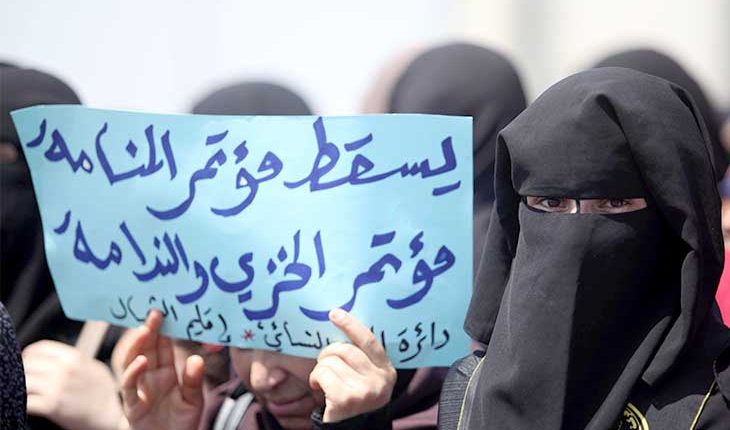 يسقط مؤتمر المنامه
مؤتمر الخزي والندامه
دائرة العمل النسائي * إقليم الشمال